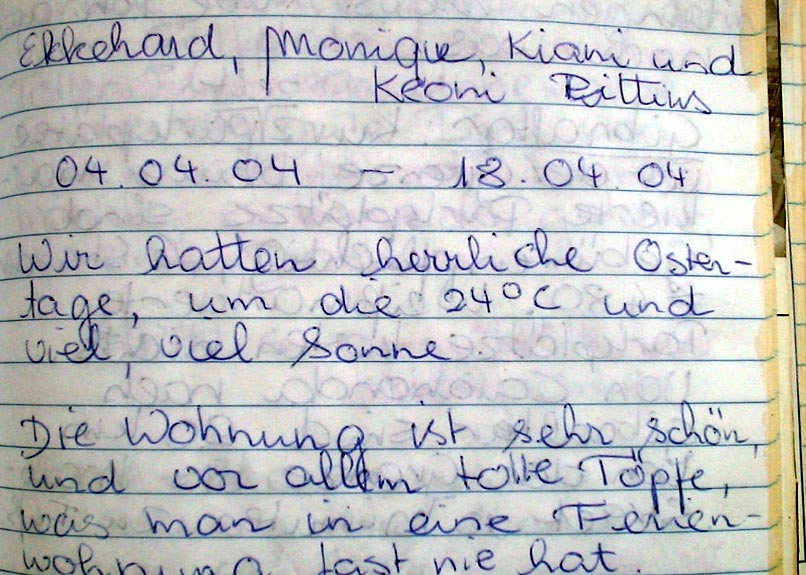 Ekkehard, Monique, Kiani und
Keoni
04.04.04 – 18.04.04
Wir hatten herrliche Oster-
tage, um die 24°C und
viel, viel Sonne.
Die Wohnung ist sehr schön,
und vor allem tolle Töpfe,
was man in eine Ferien-
wohnung fast nie hat.